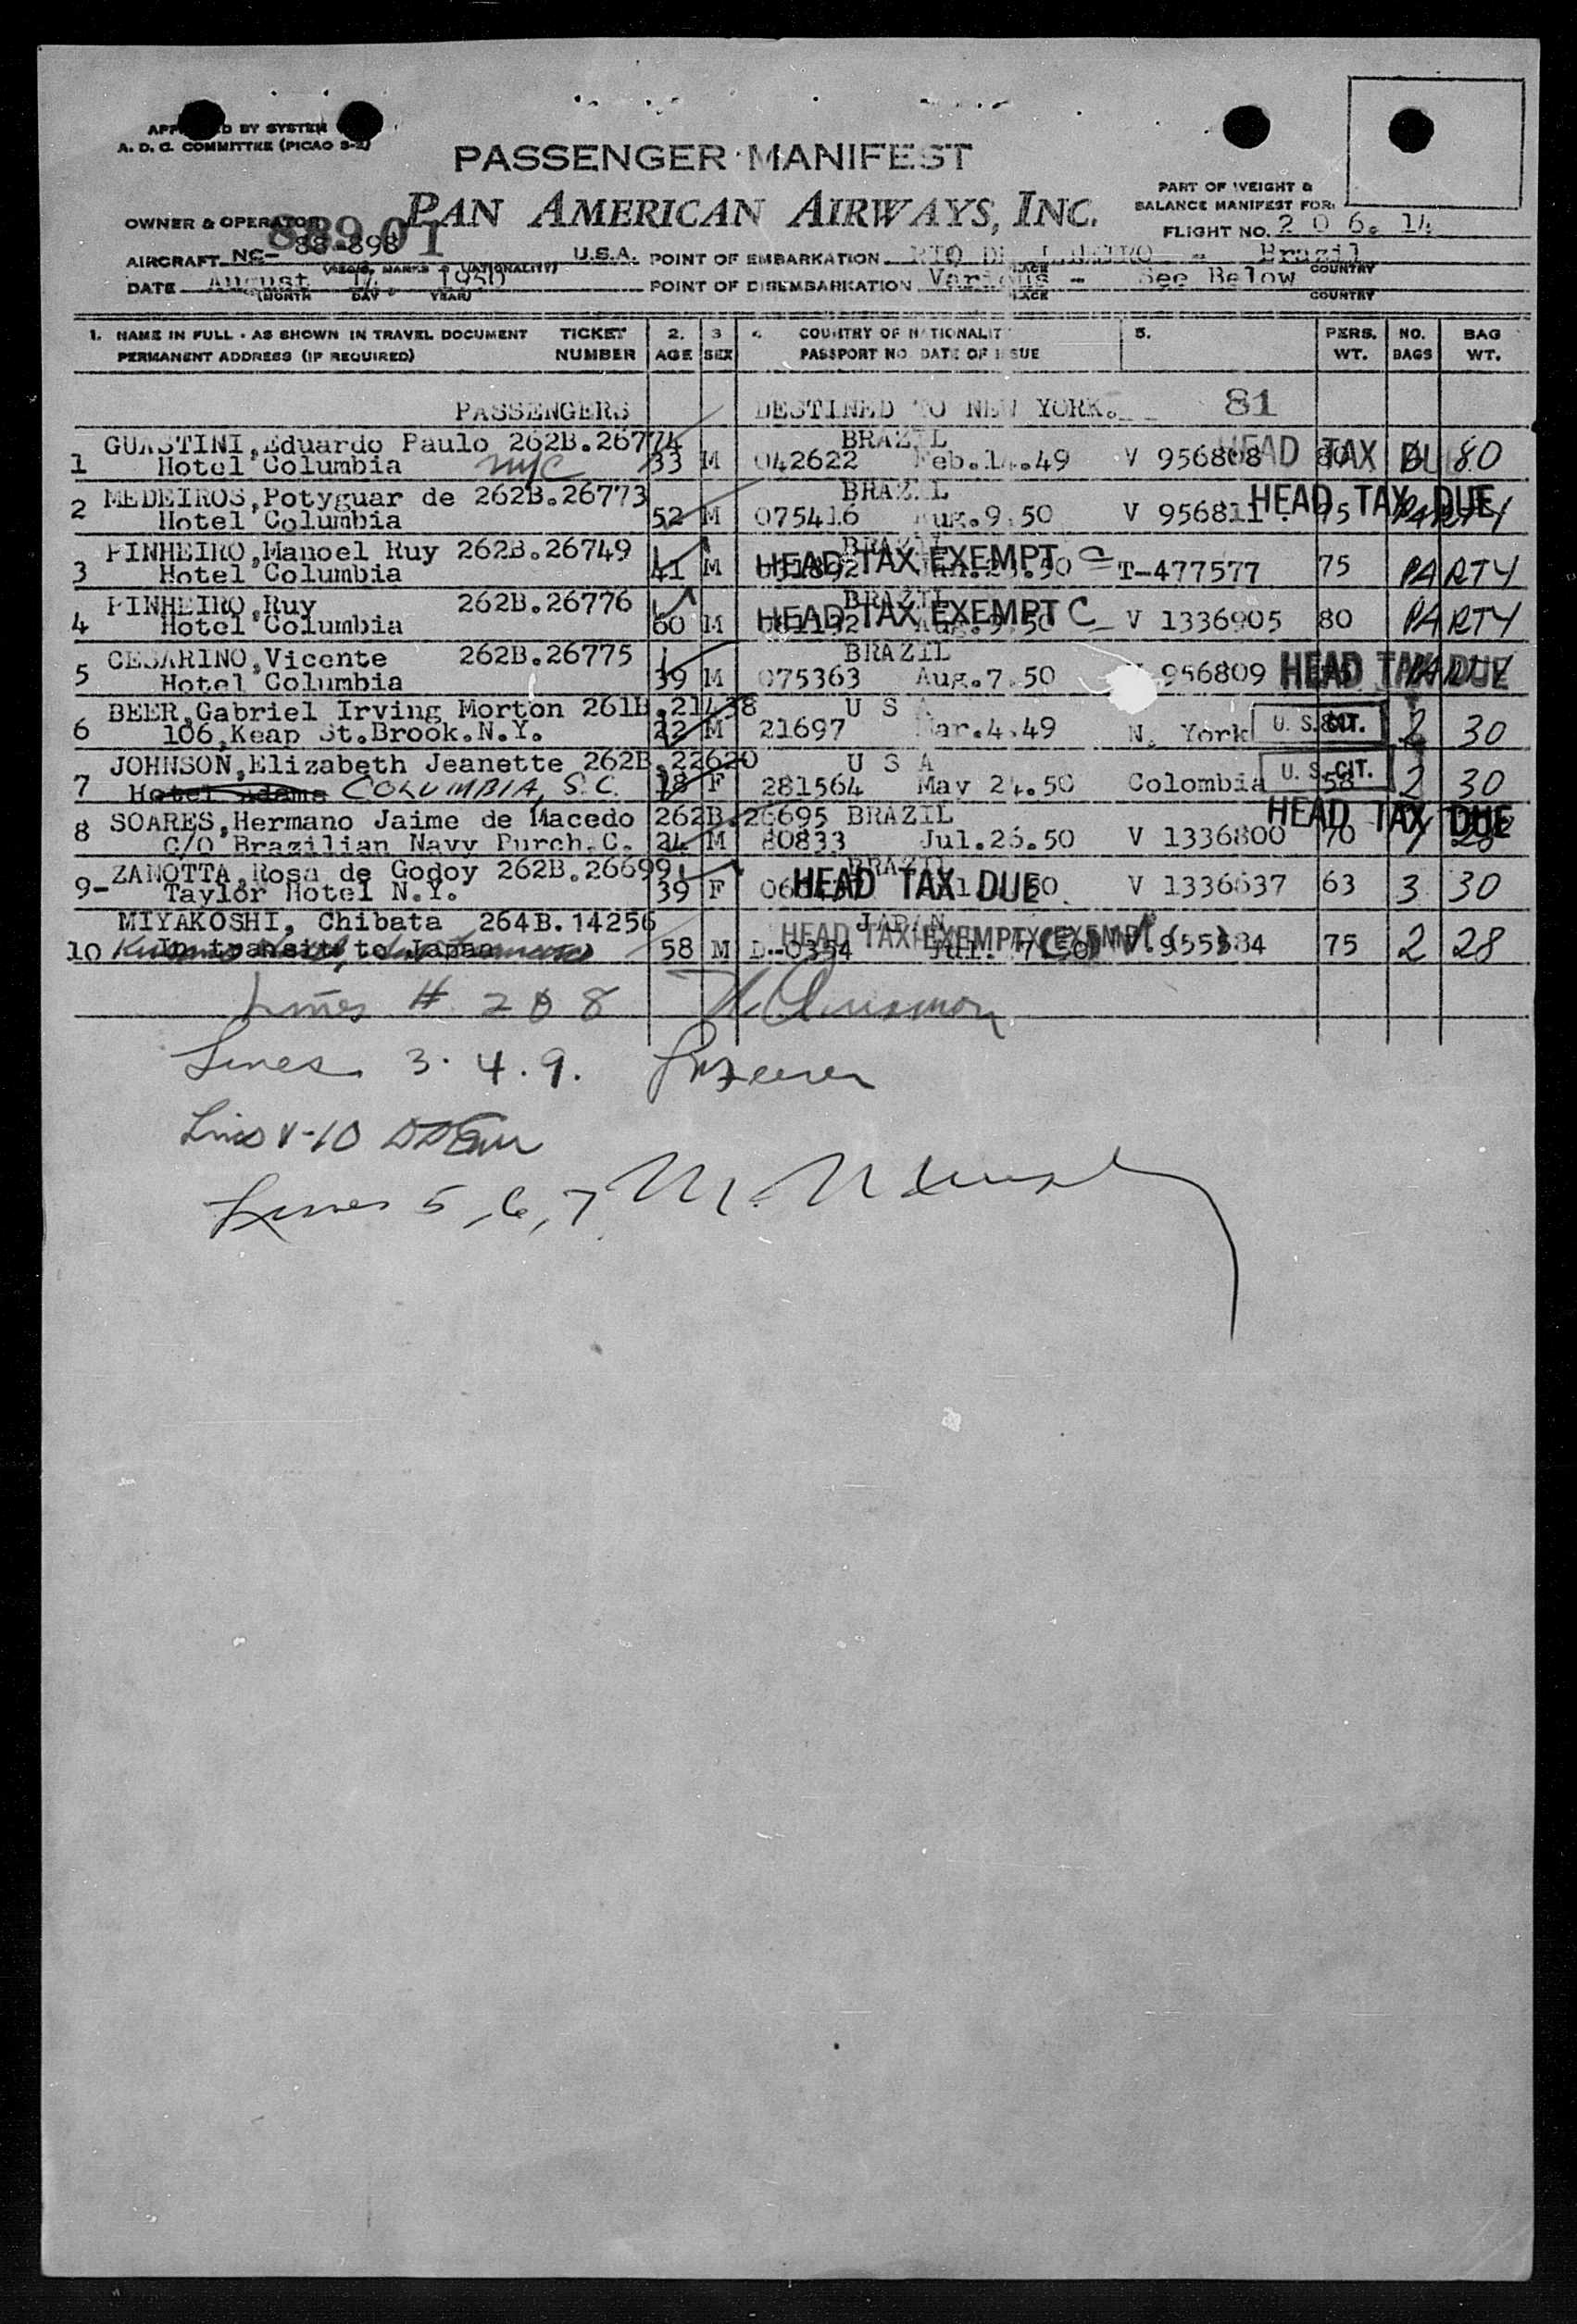 BY SYSTEM
A. D. C. COMMITTEE (PICAO S-2)
PASSENGER MANIFEST
PAN AMERICAN AIRWAYS, INC.
PART OF WEIGHT &
BALANCE MANIFEST FOR:
FLIGHT NO. 206. 14
OWNER & OPERATOR
88901
AIRCRAFT NC- 88-898 U.S.A. POINT OF EMBARKATION RIO DE JANEIRO - Brazil
(REG'S, MARKS & NATIONALITY) PLACE COUNTRY
DATE August 14 1950 POINT OF DISEMBARKATION Various - See Below
(MONTH DAY YEAR) PLACE COUNTRY
1. NAME IN FULL - AS SHOWN IN TRAVEL DOCUMENT TICKET 2. 3 4. COUNTRY OF NATIONALITY 5. PERS. NO. BAG
PERMANENT ADDRESS (IF REQUIRED) NUMBER AGE SEX PASSPORT NO. DATE OF ISSUE WT. BAGS WT.
PASSENGERS DESTINED TO NEW YORK. 81
GUASTINI,Eduardo Paulo 262B.26774 BRAZIL
1 Hotel Columbia NYC 33 M 042622 Feb.14.49 V 956808 HEAD TAX DUE 80
MEDEIROS,Potyguar de 262B.26773 BRAZIL HEAD TAX DUE
2 Hotel Columbia 52 M 075416 Aug.9.50 V 956811 75 PARTY
PINHEIRO,Manoel Ruy 262B.26749 BRAZIL
3 Hotel Columbia 41 M HEAD TAX EXEMPT C T-477577 75 PARTY
PINHEIRO,Ruy 262B.26776 BRAZIL
4 Hotel Columbia 60 M HEAD TAX EXEMPT C V 1336905 80 PARTY
CESARINO,Vicente 262B.26775 BRAZIL
5 Hotel Columbia 39 M 075363 Aug.7.50 956809 HEAD TAX DUE PARTY
BEER,Gabriel Irving Morton 261B.21438 U S A
6 106,Keap St.Brook.N.Y. 22 M 21697 Mar.4.49 N. York U. S. CIT. 2 30
JOHNSON,Elizabeth Jeanette 262B.22620 U S A
7 Hotel Adams COLUMBIA, S.C. 18 F 281564 May 24.50 Colombia U. S. CIT. 58 2 30
SOARES,Hermano Jaime de Macedo 262B.26695 BRAZIL HEAD TAX DUE
8 C/O Brazilian Navy Purch.C. 24 M 80833 Jul.26.50 V 1336800 70
ZANOTTA,Rosa de Godoy 262B.26699 BRAZIL
9- Taylor Hotel N.Y. 39 F HEAD TAX DUE V 1336637 63 3 30
MIYAKOSHI, Chibata 264B.14256 JAPAN
10 In transit to Japan 58 M D.-0354 Jul. HEAD TAX EXEMPT V.955584 75 2 28
Lines # 2 & 8
Lines 3. 4. 9.
Lines 1-10
Lines 5, 6, 7